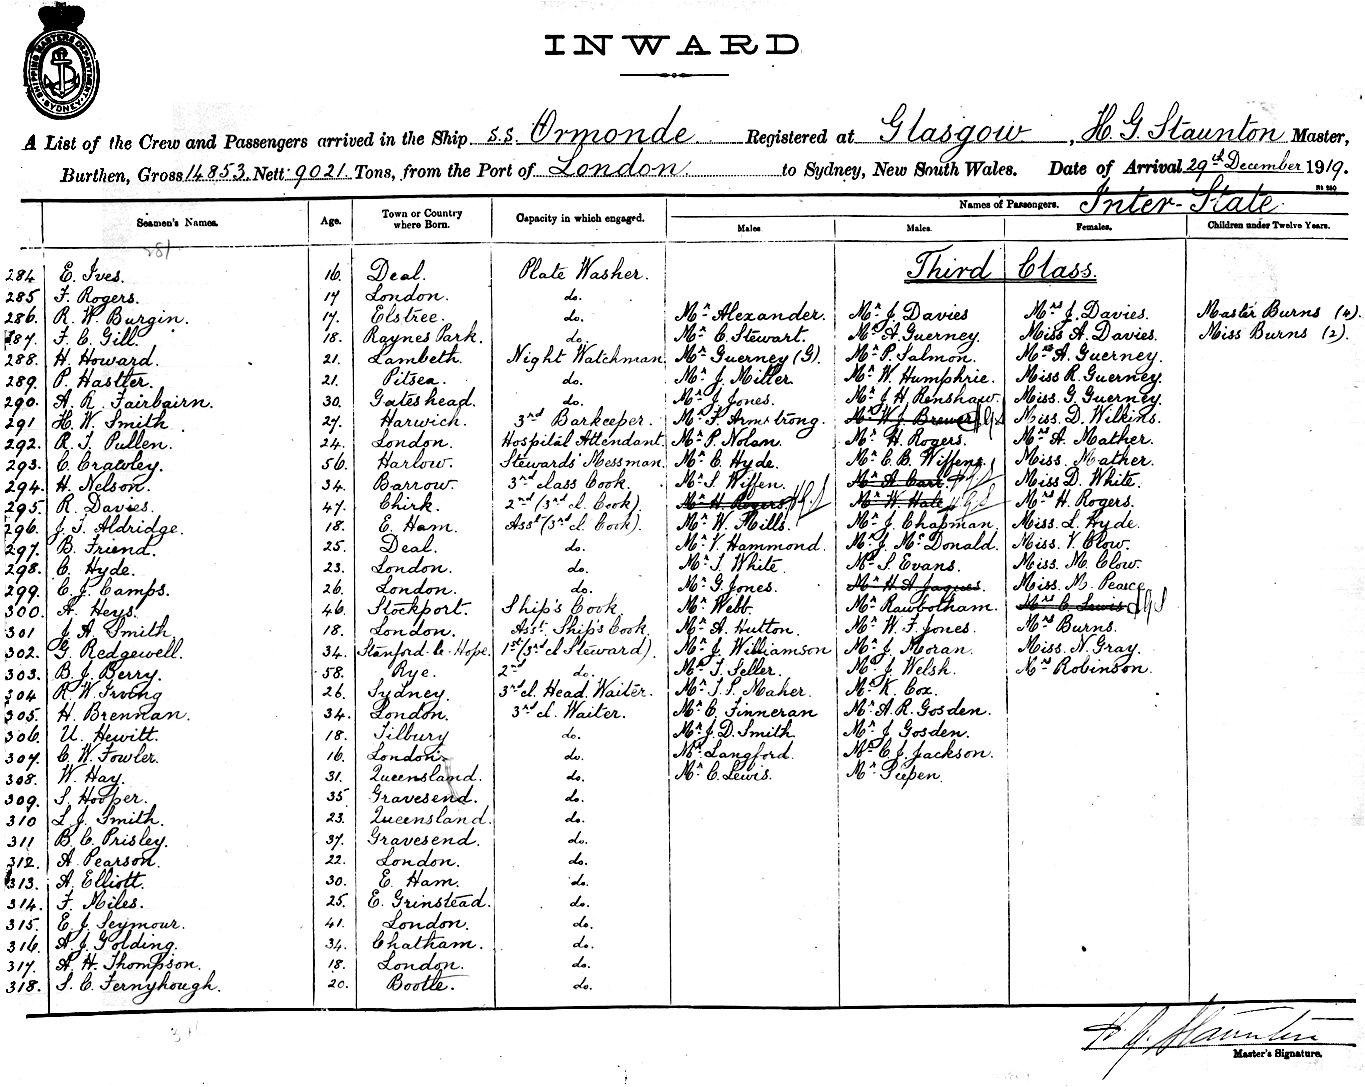 SHIPPING MASTERS DEPARTMENT SYDNEY
INWARD
A List of the Crew and Passengers arrived in the Ship S.S. Ormonde Registered at Glasgow, H. G. Staunton Master,
Burthen, Gross 14853 Nett 9021 Tons, from the Port of London to Sydney, New South Wales. Date of Arrival 29th December 1919.
Names of Passengers. Inter-State
Seamen's Names. Age. Town or Country where Born. Capacity in which engaged. Males Males. Females. Children under Twelve Years.
281
Third Class.
284 E. Ives. 16. Deal. Plate Washer.
285 F. Rogers. 17 London. do.
286. R. W. Burgin. 17. Elstree. do. Mr Alexander. Mr J. Davies Mrs J. Davies. Master Burns (4).
287. F. C. Gill. 18. Raynes Park. do. Mr C. Stewart. Mr A. Guerney. Miss A. Davies. Miss Burns (2).
288. H. Howard. 21. Lambeth. Night Watchman. Mr Guerney (G). Mr P. Salmon. Mrs A. Guerney.
289. P. Hastler. 21. Pitsea. do. Mr J. Miller. Mr W. Humphrie. Miss R. Guerney.
290. A. R. Fairbairn. 30. Gateshead. do. Mr J. Jones. Mr J. H. Renshaw. Miss. G. Guerney.
291 H. W. Smith 27. Harwich. 3rd Barkeeper. Mr F. Armstrong. Mr W. J. Brewer Miss. D. Wilkins.
292. R. J. Pullen. 24. London. Hospital Attendant. Mr P. Nolan. Mr H. Rogers. Mrs A. Mather.
293. C. Crawley. 56. Harlow. Stewards' Messman. Mr C. Hyde. Mr C. B. Wiffens. Miss. Mather.
294. H. Nelson. 34. Barrow. 3rd class Cook. Mr S. Wiffen. Mr A. Carr. Miss D. White.
295. R. Davies. 47. Chirk. 2nd (3rd cl. Cook). Mr H. Rogers Mr W. Hale Mrs H. Rogers.
296. J. T. Aldridge. 18. E. Ham. Asst (3rd cl. Cook). Mr W. Mills. Mr J. Chapman. Miss. L. Hyde.
297. B. Friend. 25. Deal. do. Mr V. Hammond. Mr J. McDonald. Miss. V. Clow.
298. C. Hyde. 23. London. do. Mr T. White. Mr S. Evans. Miss. M. Clow.
299. C. J. Camps. 26. London. do. Mr G. Jones. Mr H. A. Jaques. Miss. M. Pearce
300. A. Heys. 46. Stockport. Ship's Cook Mr Webb. Mr Rawbotham. Mrs C. Lewis
301 J. A. Smith. 18. London. Asst. Ship's Cook. Mr A. Hutton. Mr W. F. Jones. Mrs Burns.
302. G. Redgewell. 34. Stanford-le-Hope. 1st (3rd cl Steward). Mr J. Williamson Mr J. Moran. Miss. N. Gray.
303. B. J. Berry. 58. Rye. 2nd do. Mr T. Seller. Mr J. Welsh. Mrs Robinson.
304 R. W. Irving 26. Sydney. 3rd cl. Head Waiter. Mr T. P. Maher. Mr K. Cox.
305. H. Brennan. 34. London. 3rd cl. Waiter. Mr C. Finneran Mr A. R. Gosden.
306. U. Hewitt. 18. Tilbury do. Mr J. D. Smith. Mr J. Gosden.
307. C. W. Fowler. 16. London. do. Mr Langford. Mr C. J. Jackson.
308. W. Hay. 31. Queensland. do. Mr C. Lewis. Mr Piepen.
309. S. Hooper. 35 Gravesend. do.
310 L. J. Smith. 23. Queensland. do.
311 B. C. Prisley. 37. Gravesend. do.
312. A. Pearson. 22. London. do.
313. A. Elliott. 30. E. Ham. do.
314. F. Miles. 25. E. Grinstead. do.
315. E. J. Seymour. 41. London. do.
316. A. J. Golding. 34. Chatham. do.
317. A. H. Thompson. 18. London. do.
318. S. C. Fernyhough. 20. Bootle. do.
H. G. Staunton
Master's Signature.